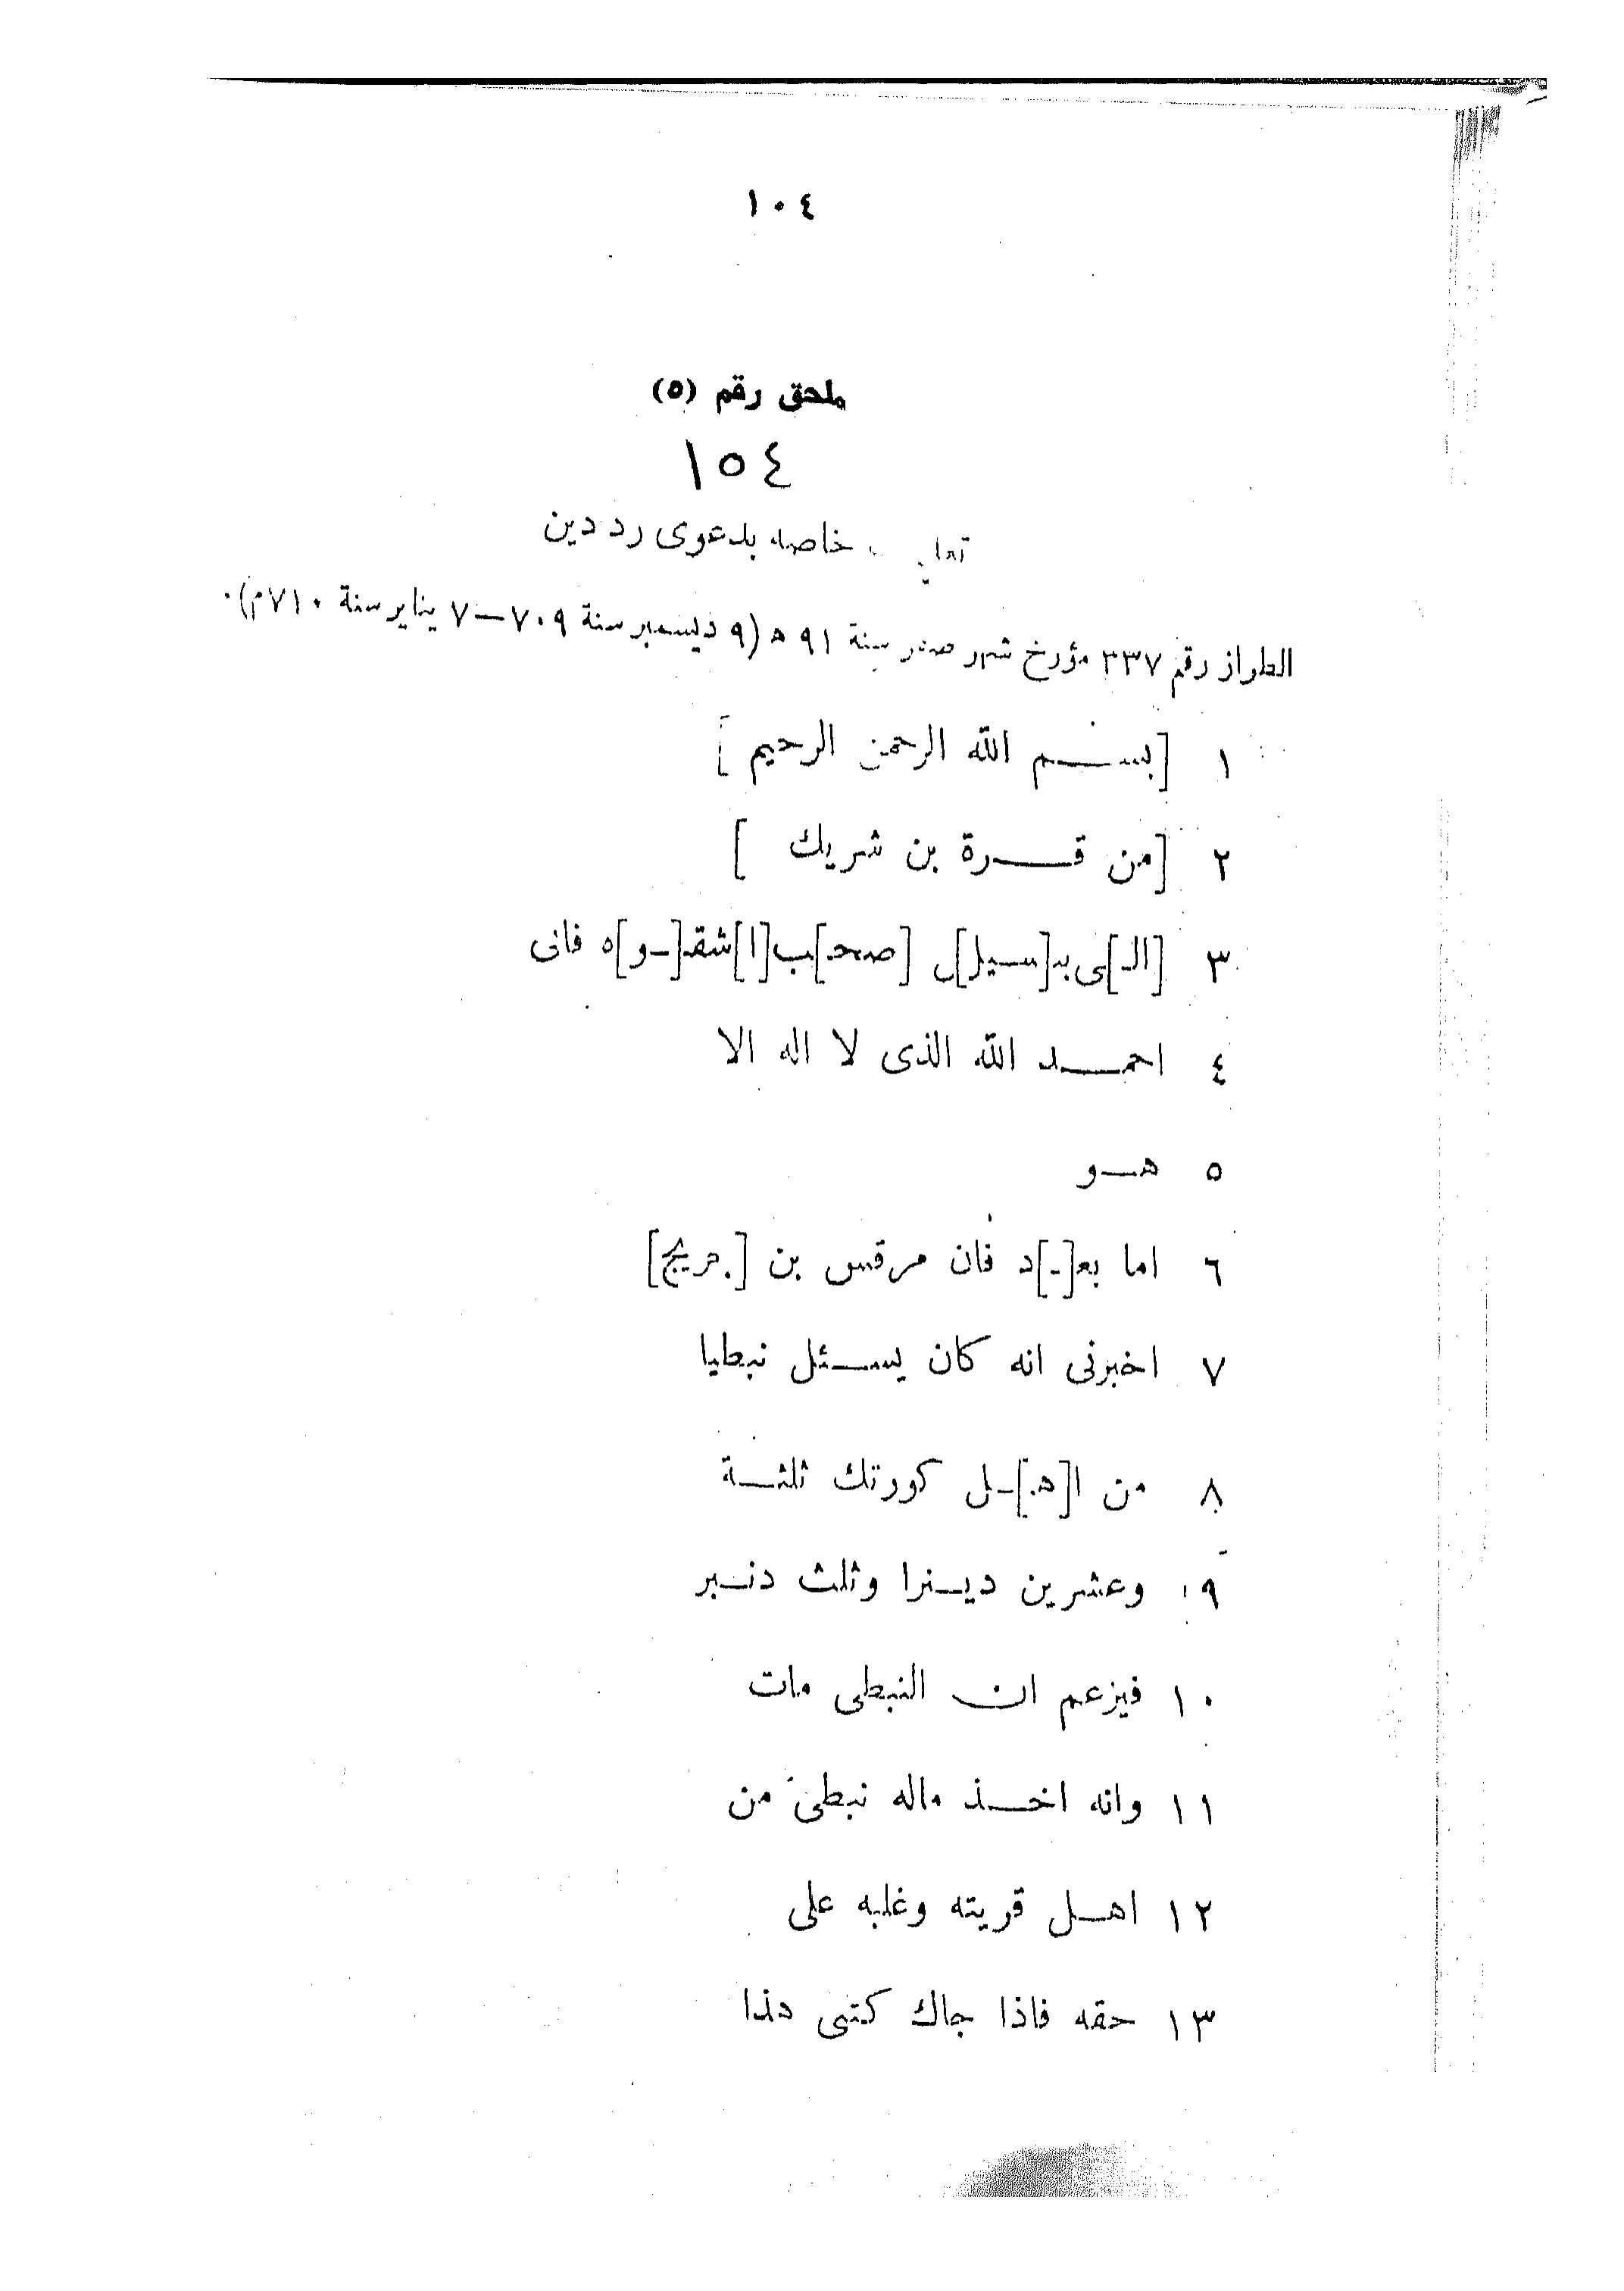 ١٠٤
ملحق رقم (٥)
١٥٤
خاصه بدعوى رد دين
الطراز رقم ٣٣٧ مؤرخ شهر صفر سنة ٩١ ه (٩ ديسمبر سنة ٧٠٩ — ٧ يناير سنة ٧١٠م).
١ [بسم الله الرحمن الرحيم]
٢ [من قرة بن شريك ]
٣ [الـ]ى بـ[ـسيل]ل [صحـ]ب [ا]شقـ[ـو]ه فانى
٤ احمد الله الذى لا اله الا
٥ هو
٦ اما بعـ[ـ]د فان مرقس بن [جريج]
٧ اخبرنى انه كان يسئل نبطيا
٨ من ا[هـ]ـل كورتك ثلثة
٩ وعشرين دينرا وثلث دنير
١٠ فيزعم ان النبطى مات
١١ وانه اخذ ماله نبطى من
١٢ اهل قريته وغلبه على
١٣ حقه فاذا جاك كتبى هذا